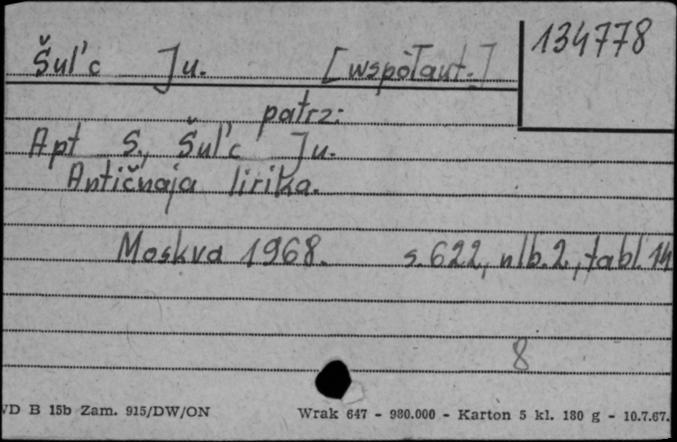 Šul'c Ju. [wspòłaut.]
134778
patrz:
Apt S., Šul'c Ju.
Antičnaja lirika.
Moskva 1968. s. 622, nlb. 2, tabl. 14
8
VD B 15b Zam. 915/DW/ON Wrak 647 - 980.000 - Karton 5 kl. 180 g - 10.7.67.